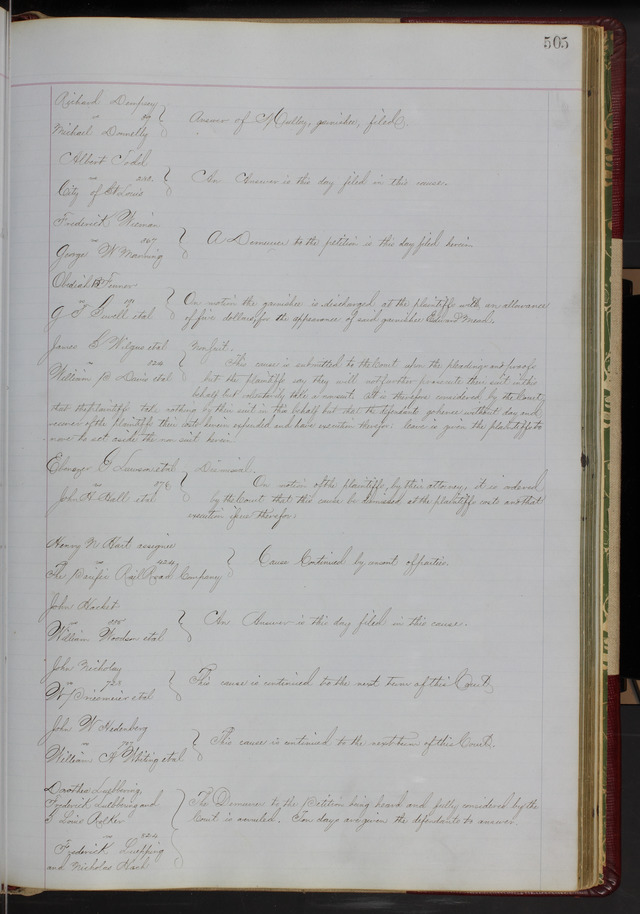 505
Richard Dempsey
vs
Michael Donnelly
Answer of garnishee, filed.
Albert Todd
vs
City of St Louis
An Answer is this day filed in this cause.
Frederick
vs 567
George W Manning
A Demurrer to the petition is this day filed herein
Obadiah B
vs
G S Sewell etal
On motion the garnishee is discharged, at the plaintiffs with an allowance
of five dollars, for the appearance of said garnishee Edward Mead.
James S etal
vs 120
William B Davis etal
Nonsuit.
This cause is submitted to the Court upon the pleadings and proofs
but the plaintiffs say they will not further prosecute their suit in this
behalf but voluntarily take a nonsuit. It is therefore considered by the Court
that the plaintiffs take nothing by their suit in this behalf but that the defendants go hence without day and
recover of the plaintiffs their costs herein expended and have execution therefor. Leave is given the plaintiffs to
move to set aside the non suit herein
Ebenezer G Lawson etal
vs 276
John H Hall etal
Dismissed.
On motion of the plaintiffs, by their attorney, it is ordered
by the Court that this cause be dismissed, at the plaintiffs costs and that
execution issue therefor.
Henry N Hart assignee
vs 424
The Pacific Rail Road Company
Cause Continued by consent of parties.
John Hacket
vs
William Woodson etal
An Answer is this day filed in this cause.
John Nicholay
vs 723
W Driesmeier etal
This cause is continued to the next term of this Court
John W Hedenberg
vs
William N Whiting etal
This cause is continued to the next term of this Court.
Dorothea
Frederick and
Louis
vs 324
Frederick
and Nicholas
The Demurrer to the Petition being heard and fully considered by the
Court is overruled. Ten days are given the defendants to answer.